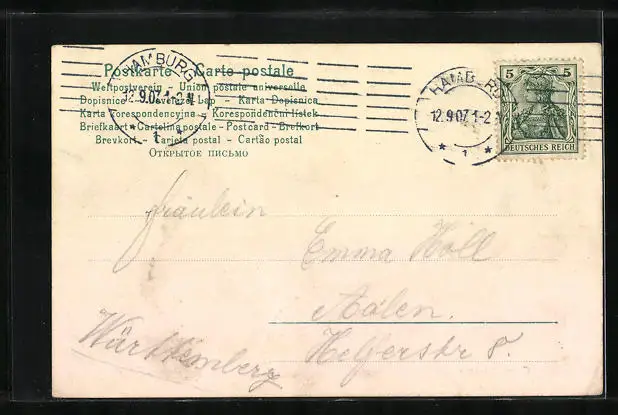 Postkarte - Carte postale
Weltpostverein - Union postale universelle
Dopisnice - Levelező-Lap - Karta Dopisnica
Karta korespondencyjna - Korespondenční listek
Briefkaart - Cartolina postale - Postcard - Brefkort
Brevkort - Tarjeta postal - Cartão postal
ОТКРЫТОЕ ПИСЬМО
HAMBURG
12.9.07.1-2 N
* 1 *
HAMBURG
12.9.07.1-2 N
* 1 *
5 5
DEUTSCHES REICH
Fräulein
Emma Holl
Aalen.
Helferstr 8.
Württemberg